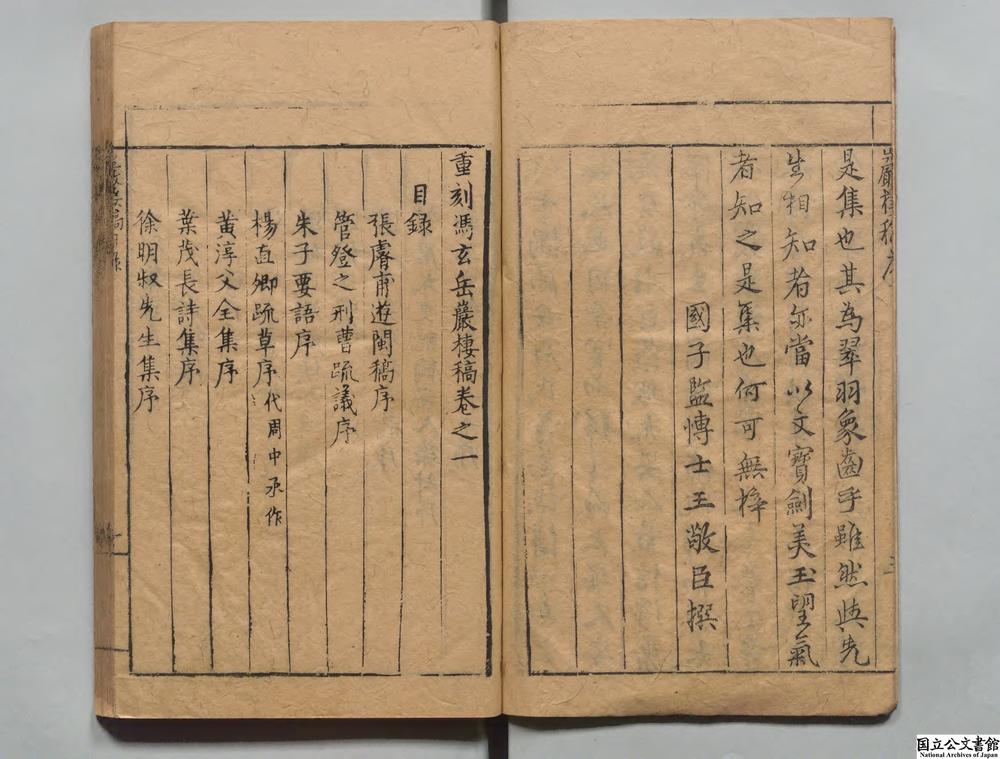 巖棲稿序
是集也其為翠羽象齒乎雖然與先
生相知者亦當以文寶劍美玉望氣
者知之是集也何可無梓
國子監博士王敬臣撰
三
重刻馮玄岳巖棲稿卷之一
目録
張膚甫遊閩稿序
管登之刑曹疏議序
朱子要語序
楊直卿疏草序代周中丞作
黄淳父全集序
葉茂長詩集序
徐明叔先生集序
国立公文書館
National Archives of Japan